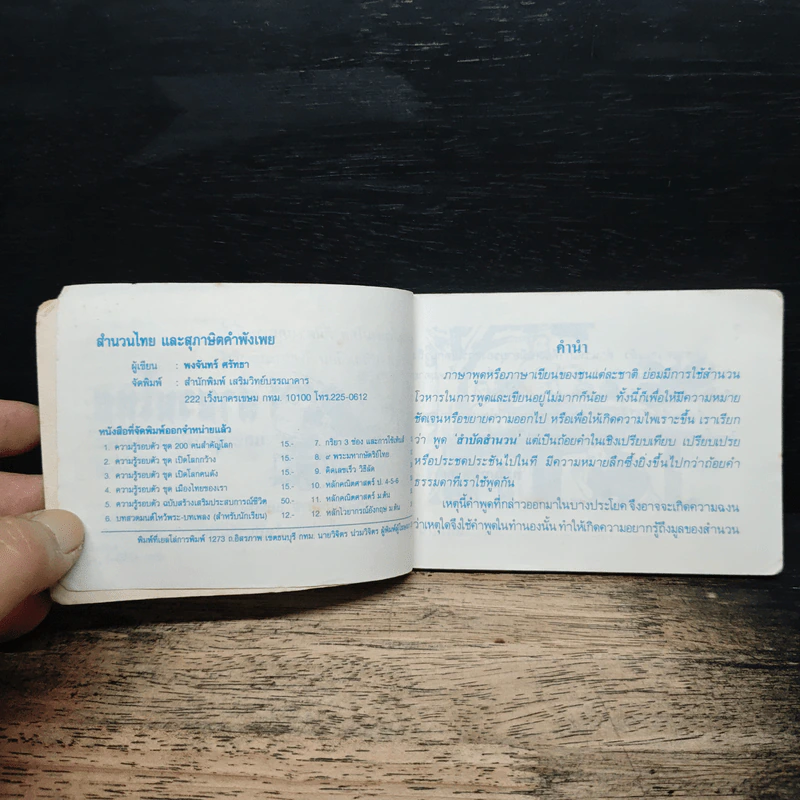 สำนวนไทย และสุภาษิตคำพังเพย
ผู้เขียน : พงจันทร์ ศรัทธา
จัดพิมพ์ : สำนักพิมพ์ เสริมวิทย์บรรณาคาร
222 เวิ้งนาครเขษม กทม. 10100 โทร.225-0612
หนังสือที่จัดพิมพ์ออกจำหน่ายแล้ว
1. ความรู้รอบตัว ชุด 200 คนสำคัญโลก 15.-
2. ความรู้รอบตัว ชุด เปิดโลกกว้าง 15.-
3. ความรู้รอบตัว ชุด เปิดโลกคนดัง 15.-
4. ความรู้รอบตัว ชุด เมืองไทยของเรา 15.-
5. ความรู้รอบตัว ฉบับสร้างเสริมประสบการณ์ชีวิต 50.-
6. บทสวดมนต์ไหว้พระ-บทเพลง (สำหรับนักเรียน) 12.-
7. กริยา 3 ช่อง และการใช้เท้นส์
8. ๙ พระมหากษัตริย์ไทย
9. คิดเลขเร็ว วิธีลัด
10. หลักคณิตศาสตร์ ป. 4-5-6
11. หลักคณิตศาสตร์ ม.ต้น
12. หลักไวยากรณ์อังกฤษ ม.ต้น
พิมพ์ที่เยลโล่การพิมพ์ 1273 ถ.อิสรภาพ เขตธนบุรี กทม. นายวิจิตร น่วมวิจิตร ผู้พิมพ์ผู้โฆษณา
คำนำ
ภาษาพูดหรือภาษาเขียนของชนแต่ละชาติ ย่อมมีการใช้สำนวน
โวหารในการพูดและเขียนอยู่ไม่มากก็น้อย ทั้งนี้ก็เพื่อให้มีความหมาย
ชัดเจนหรือขยายความออกไป หรือเพื่อให้เกิดความไพเราะขึ้น เราเรียก
ว่า พูด 'สำบัดสำนวน' แต่เป็นถ้อยคำในเชิงเปรียบเทียบ เปรียบเปรย
หรือประชดประชันไปในที มีความหมายลึกซึ้งยิ่งขึ้นไปกว่าถ้อยคำ
ธรรมดาที่เราใช้พูดกัน
เหตุนี้คำพูดที่กล่าวออกมาในบางประโยค จึงอาจจะเกิดความฉงน
ว่าเหตุใดจึงใช้คำพูดในทำนองนั้น ทำให้เกิดความอยากรู้ถึงมูลของสำนวน